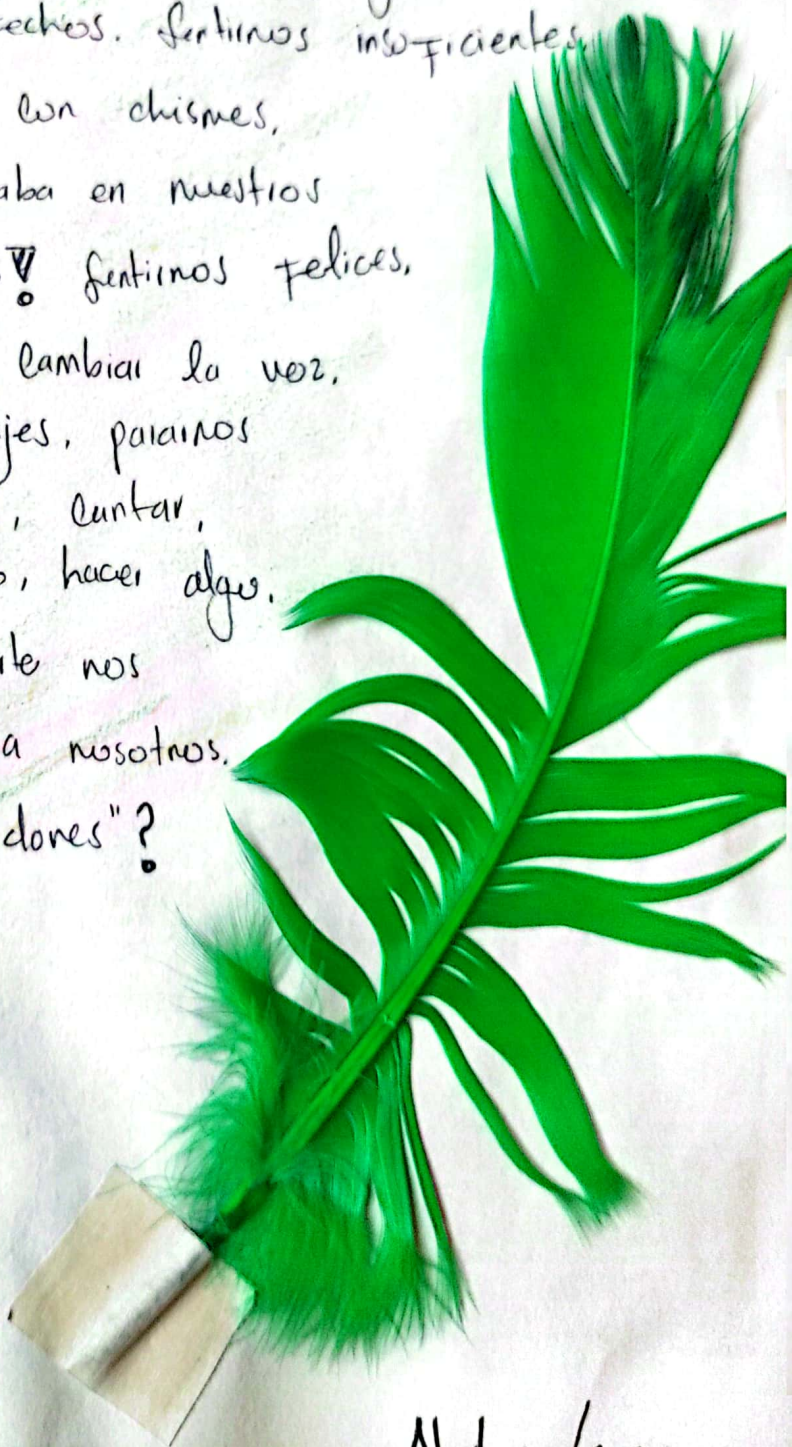 echos. Sentirnos insuficientes.
con chismes,
aba en nuestros
! Sentirnos felices,
Cambiar la voz,
jes, pararnos
, Cantar,
o, hacer algo.
te nos
a nosotros.
dores"?